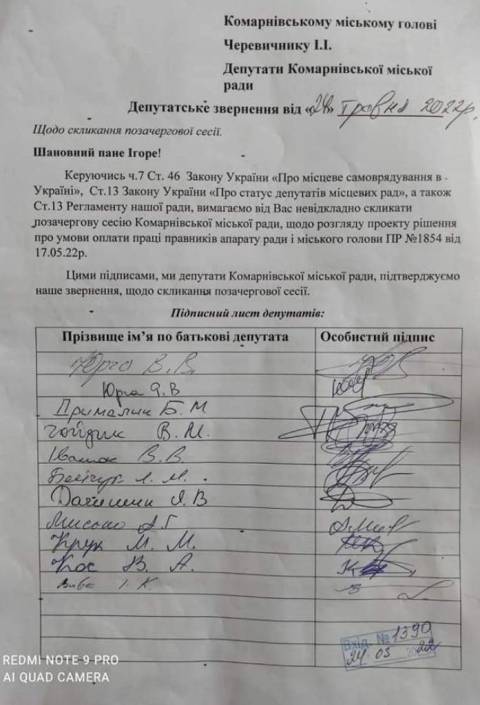 Комарнівському міському голові
Черевичнику І.І.
Депутати Комарнівської міської
ради
Депутатське звернення від «24» травня 2022р.
Щодо скликання позачергової сесії.
Шановний пане Ігоре!
Керуючись ч.7 Ст. 46 Закону України «Про місцеве самоврядування в
Україні», Ст.13 Закону України «Про статус депутатів місцевих рад», а також
Ст.13 Регламенту нашої ради, вимагаємо від Вас невідкладно скликати
позачергову сесію Комарнівської міської ради, щодо розгляду проекту рішення
про умови оплати праці правників апарату ради і міського голови ПР №1854 від
17.05.22р.
Цими підписами, ми депутати Комарнівської міської ради, підтверджуємо
наше звернення, щодо скликання позачергової сесії.
Підписний лист депутатів:
Прізвище ім’я по батькові депутата Особистий підпис
Юрго В.В.
Юрга Я.В
Дрималик Б.М
Чойдик В.М.
Івашк В.В
Л.М.
Я.В
А.Г
Крук М. М.
Кос В. А.
І. К
Вхід. № 1390
24 05 2022
REDMI NOTE 9 PRO
AI QUAD CAMERA